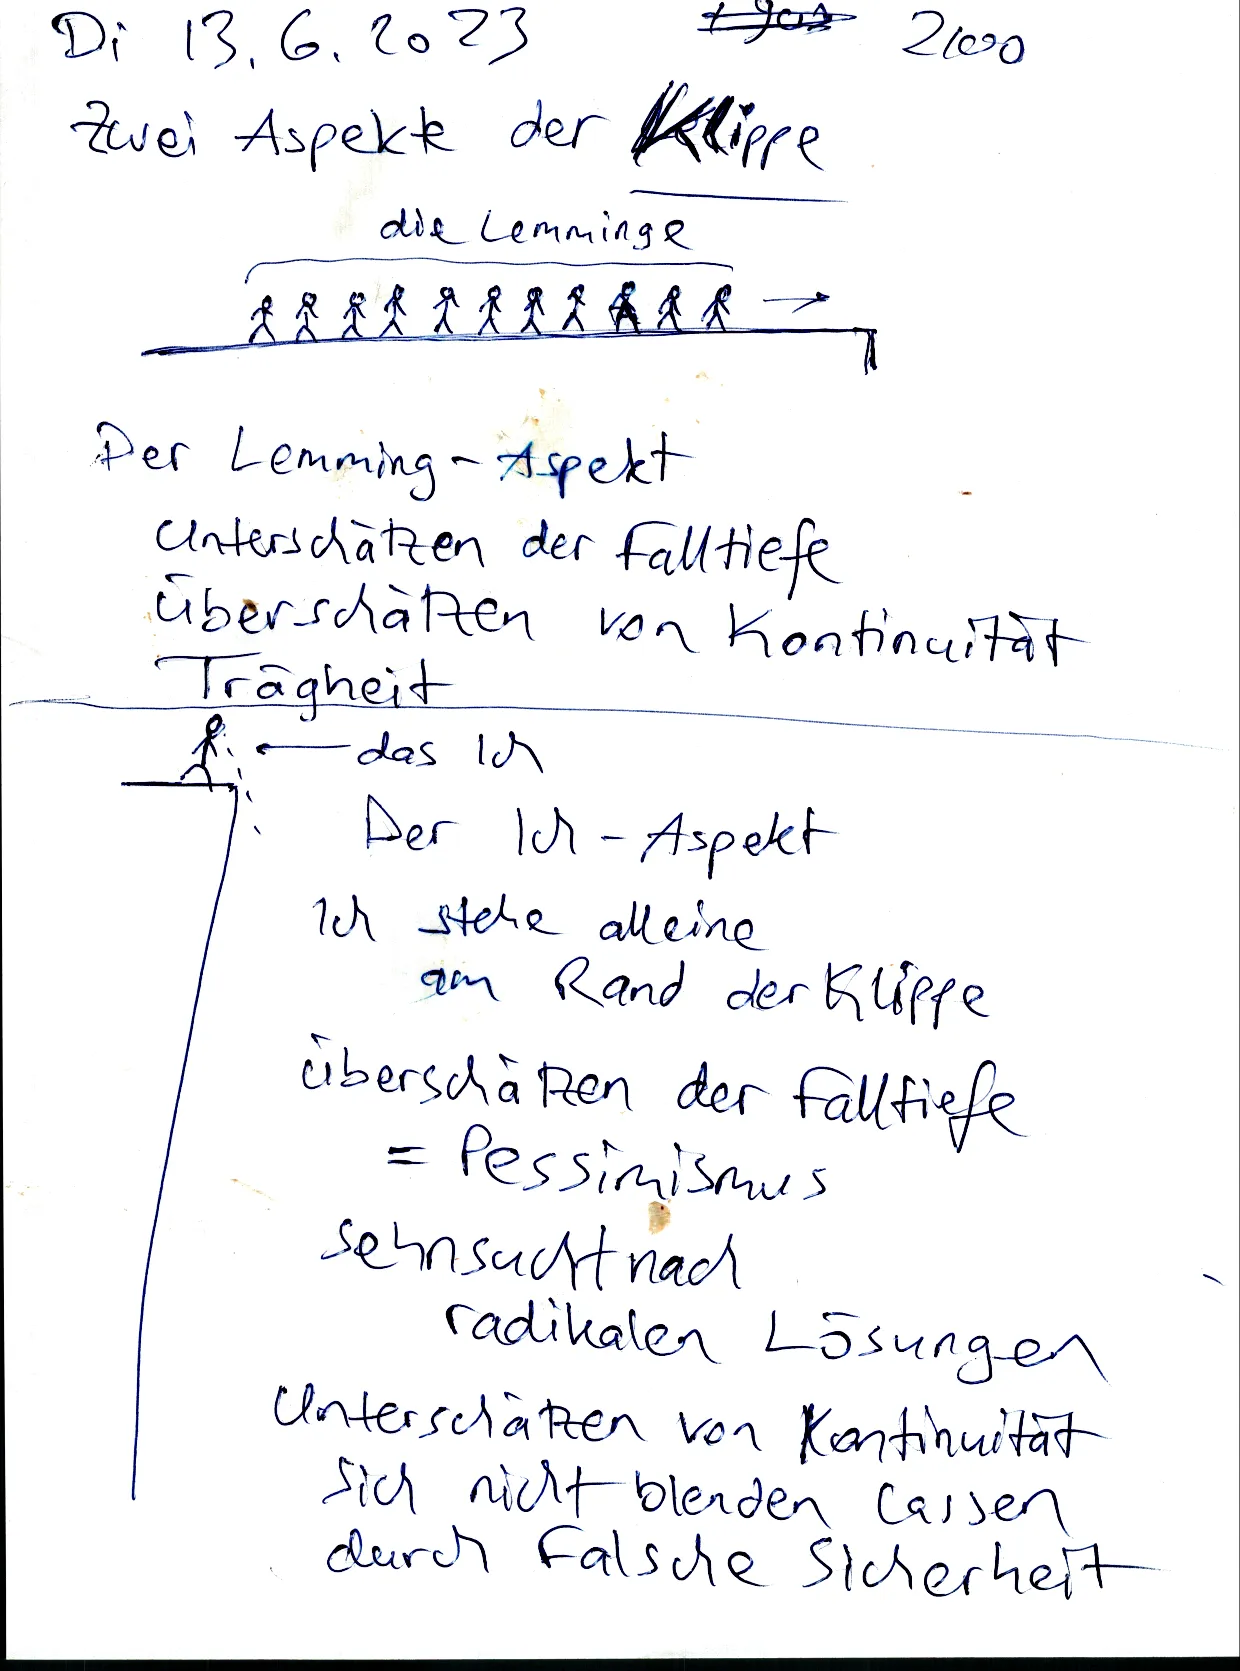 Di 13.6.2023 2100
Zwei Aspekte der Klippe
die Lemminge
Der Lemming-Aspekt
Unterschätzen der Falltiefe
Überschätzen von Kontinuität
Trägheit
das Ich
Der Ich-Aspekt
Ich stehe alleine
am Rand der Klippe
überschätzen der Falltiefe
= Pessimismus
Sehnsucht nach
radikalen Lösungen
Unterschätzen von Kontinuität
Sich nicht blenden lassen
durch Falsche Sicherheit